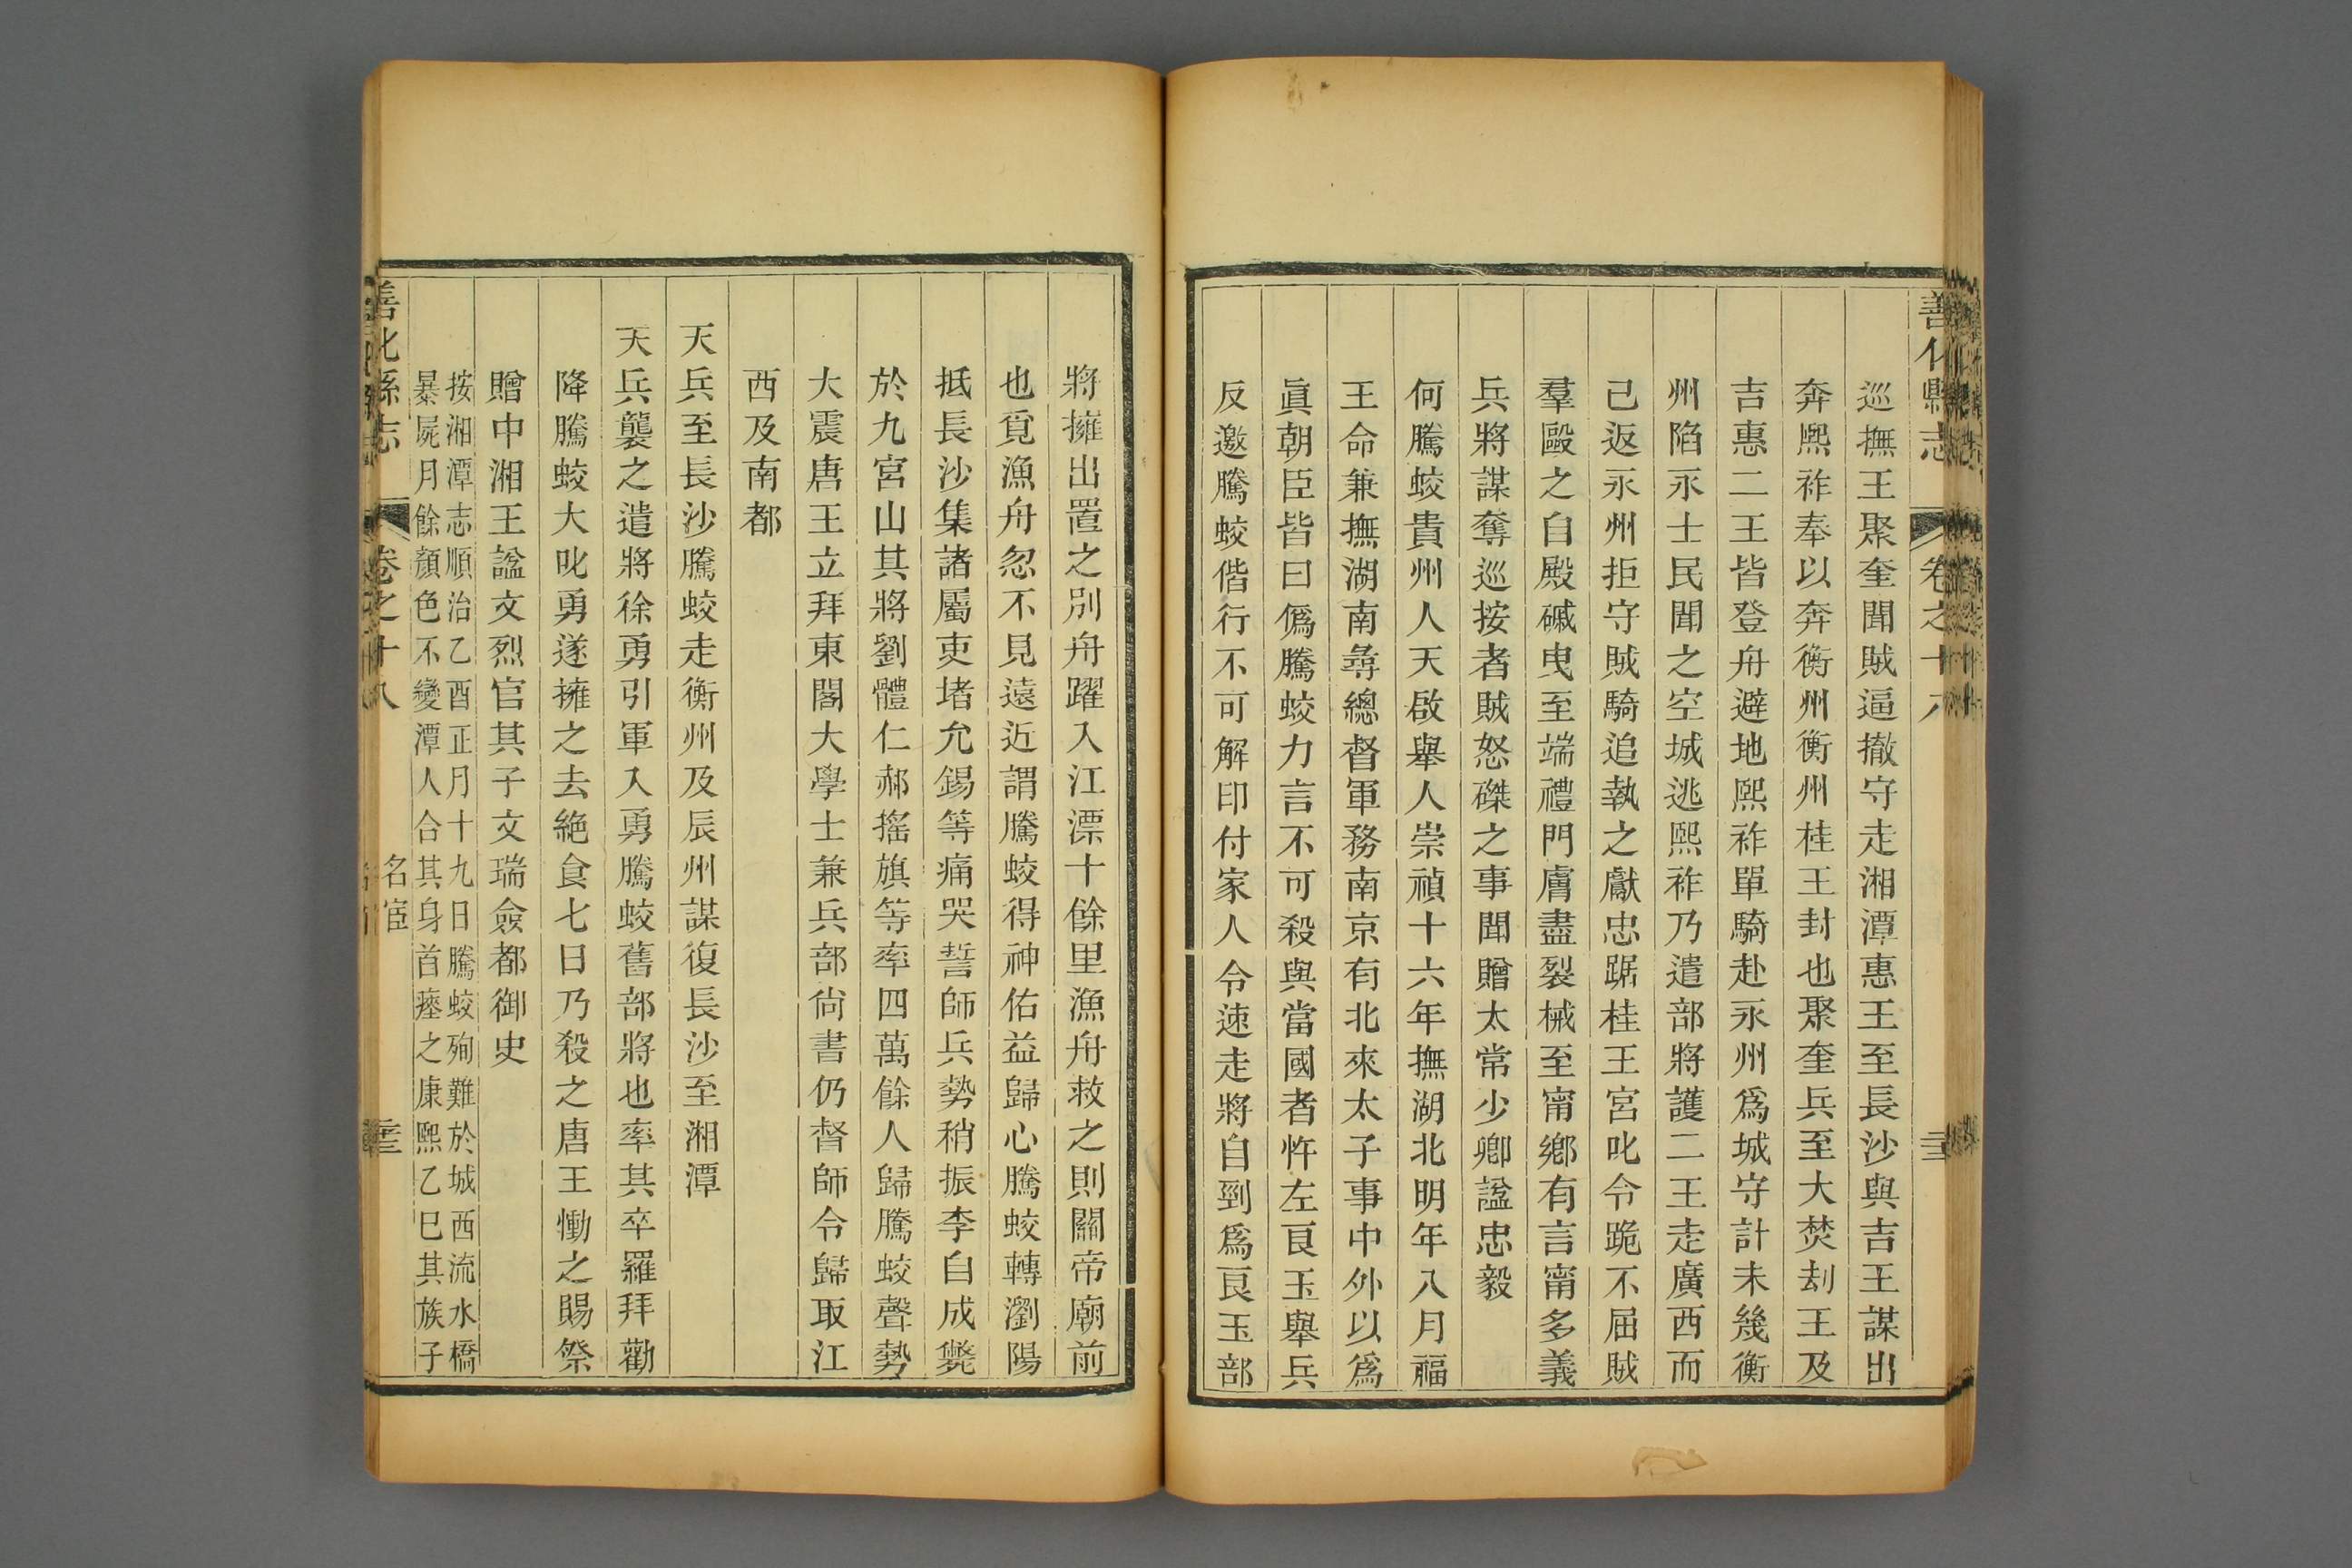 善化縣志
卷之十八
巡撫王聚奎聞賊逼撤守走湘潭惠王至長沙與吉王謀出
奔熈祚奉以奔衡州衡州桂王封也聚奎兵至大焚刦王及
吉惠二王皆登舟避地熈祚單騎赴永州爲城守計未幾衡
州陷永士民聞之空城逃熈祚乃遣部將護二王走廣西而
己返永州拒守賊騎追執之獻忠踞桂王宮叱令跪不屈賊
羣毆之自殿磩曳至端禮門膚盡裂械至甯鄉有言甯多義
兵將謀奪巡按者賊怒磔之事聞贈太常少卿諡忠毅
何騰蛟貴州人天啟舉人崇禎十六年撫湖北明年八月福
王命兼撫湖南尋總督軍務南京有北來太子事中外以爲
眞朝臣皆曰僞騰蛟力言不可殺與當國者忤左良玉舉兵
反邀騰蛟偕行不可解印付家人令速走將自剄爲良玉部
將擁出置之別舟躍入江漂十餘里漁舟救之則關帝廟前
也覓漁舟忽不見遠近謂騰蛟得神佑益歸心騰蛟轉瀏陽
抵長沙集諸屬吏堵允錫等痛哭誓師兵勢稍振李自成斃
於九宮山其將劉體仁郝搖旗等率四萬餘人歸騰蛟聲勢
大震唐王立拜東閣大學士兼兵部尙書仍督師令歸取江
西及南都
天兵至長沙騰蛟走衡州及辰州謀復長沙至湘潭
天兵襲之遣將徐勇引軍入勇騰蛟舊部將也率其卒羅拜勸
降騰蛟大叱勇遂擁之去絶食七日乃殺之唐王慟之賜祭
贈中湘王諡文烈官其子文瑞僉都御史
按湘潭志順治乙酉正月十九日騰蛟殉難於城西流水橋
暴屍月餘顏色不變潭人合其身首瘞之康熈乙巳其族子
善化縣志
卷之十八
名宦